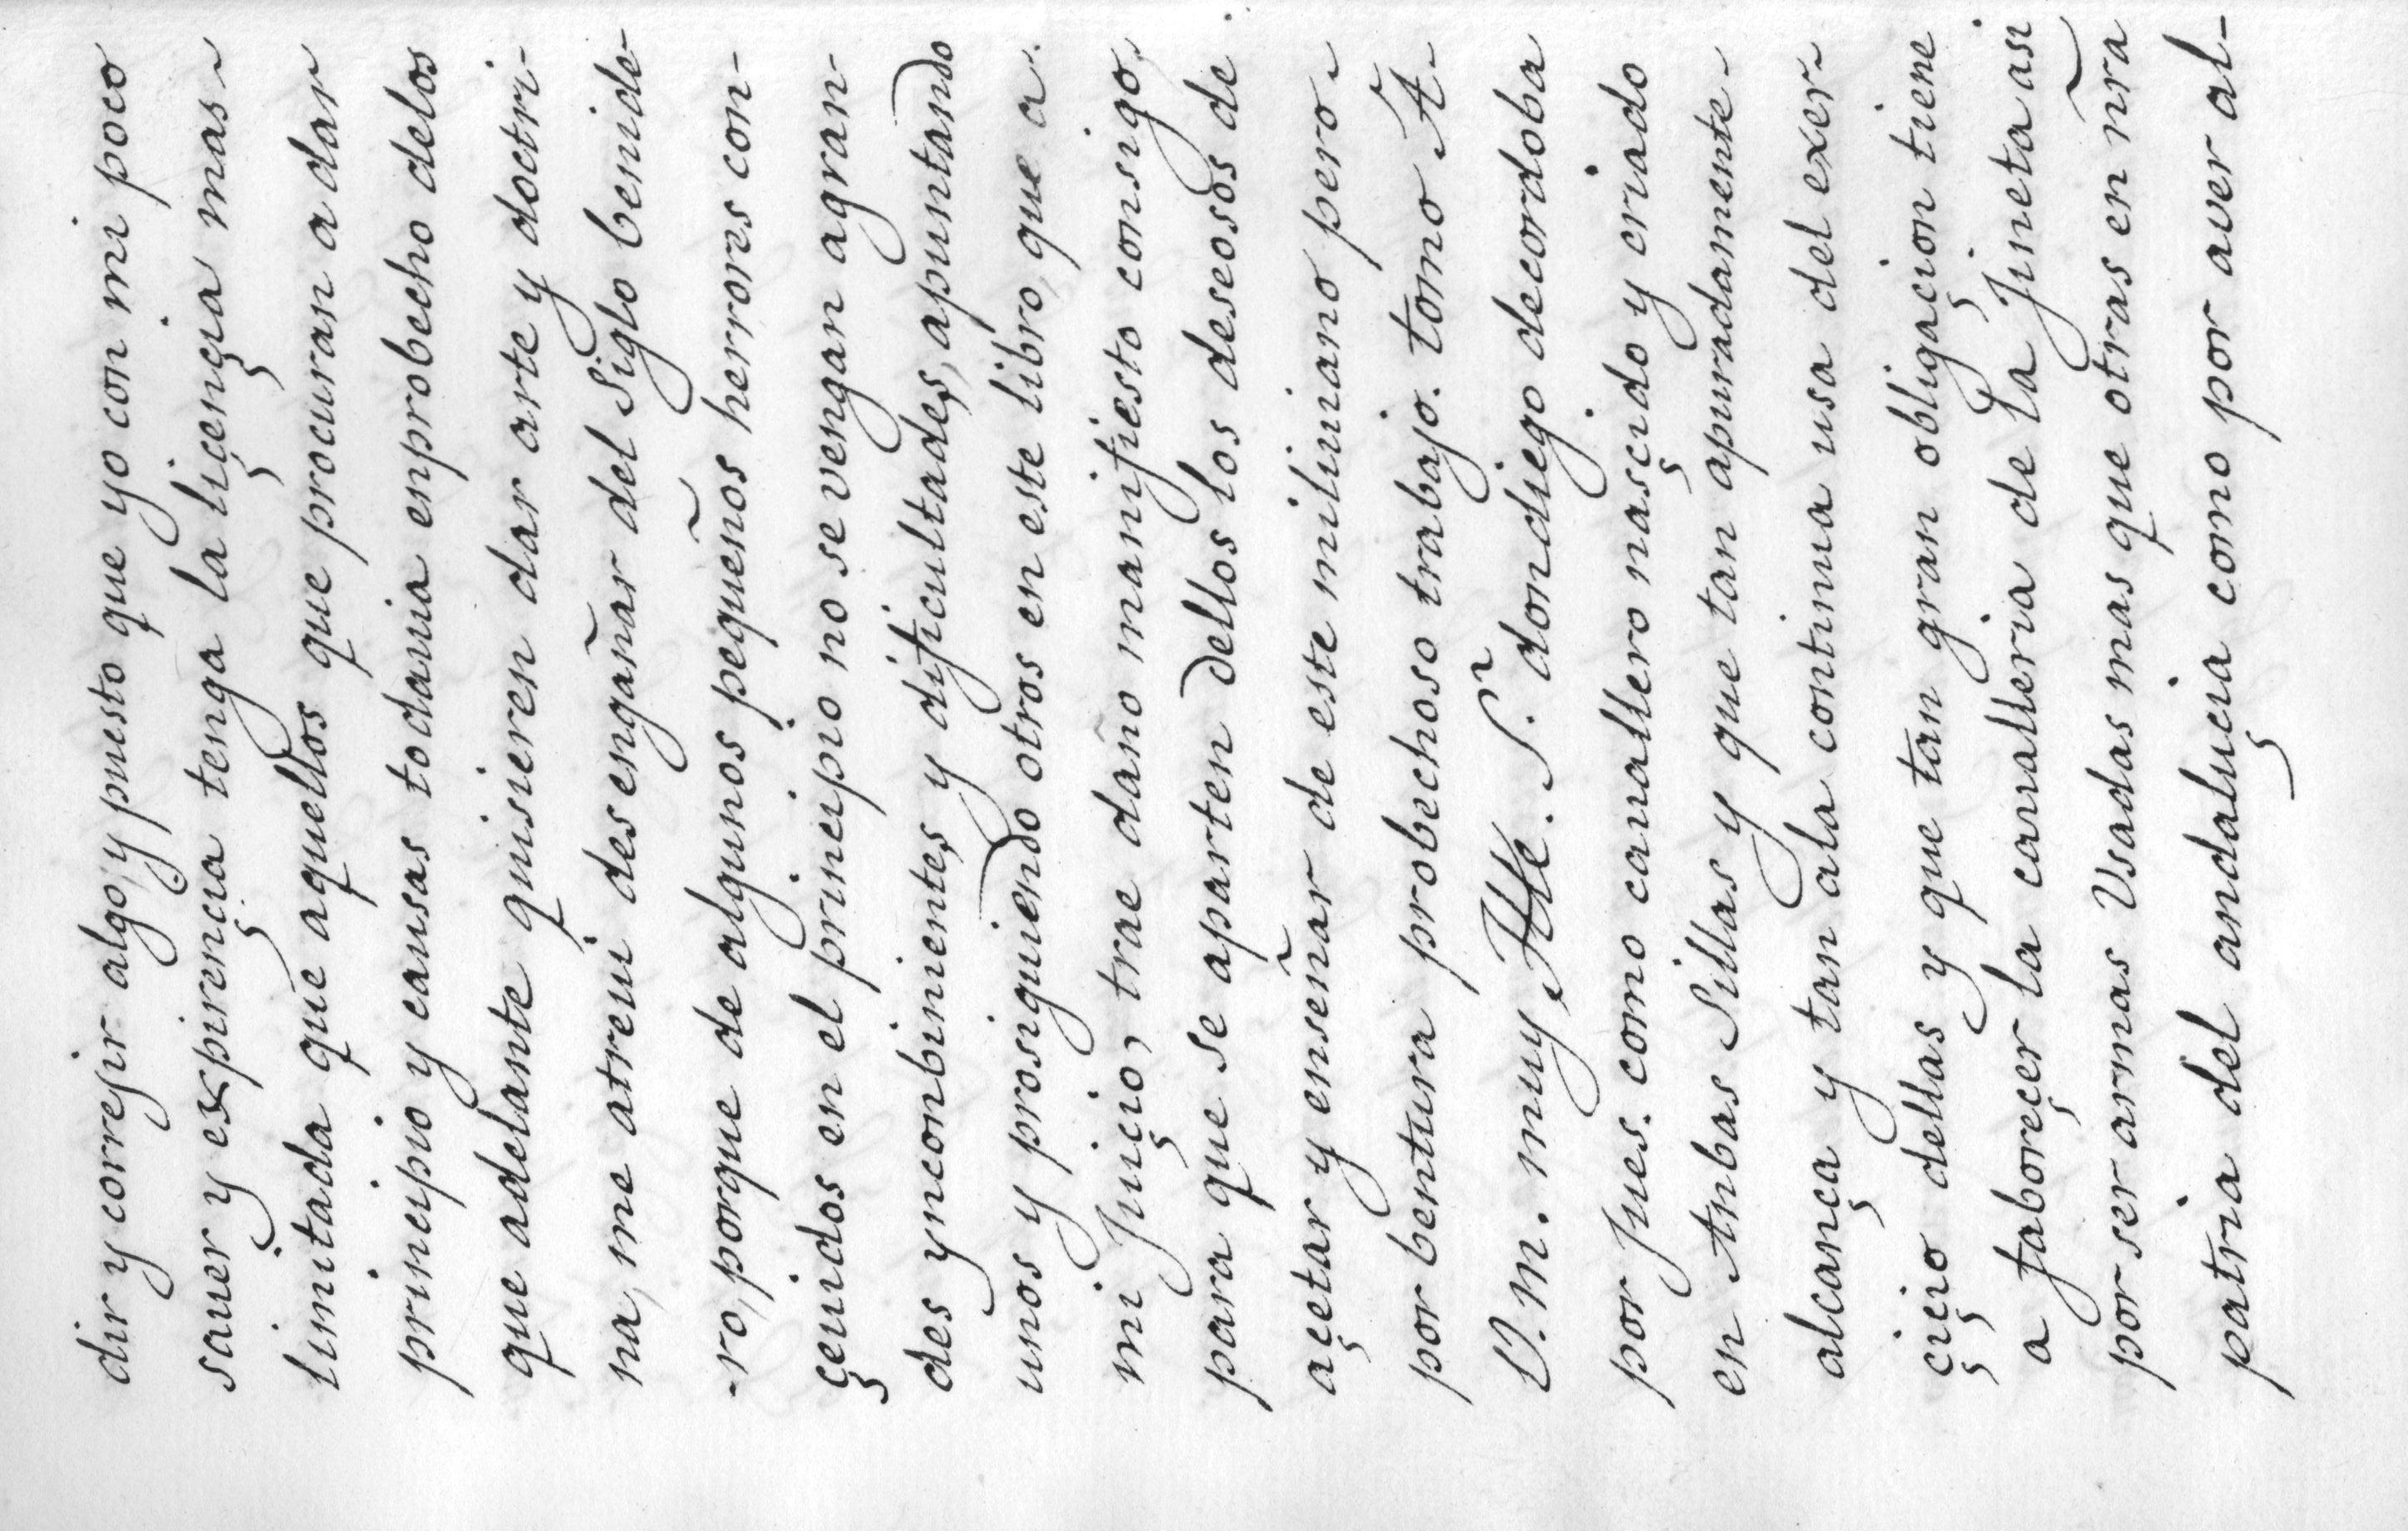 dir y corregir algo, y puesto que yo con mi poco
sauer y expirençia tenga la liçençia mas
limitada que aquellos que procuran a dar
principio y causas todauia enprobecho delos
que adelante quisieren dar arte y doctri-
na, me atreui desengañar del Siglo benide-
ro, porque de algunos pequeños herrores con-
çeuidos en el principio no se vengan agran-
des ynconbinientes, y dificultades, apuntando
unos y prosiguiendo otros en este libro, que a
mi Juiçio, trae daño manifiesto consigo,
para que se aparten dellos los deseosos de
açetar y enseñar de este miliuiano pero
por bentura probechoso trabajo. tomo A
V. m. muy Jlle. S.r dondiego decordoba
por Jues. como cauallero nasçido y criado
en Anbas Sillas y que tan apuradamente
alcança y tan ala continua usa del exer
çiçio dellas y que tan gran obligaçion tiene
a faboreçer la caualleria de la Jineta asi
por ser armas Usadas mas que otras en nr̃a
patria del andaluçia como por aver al-